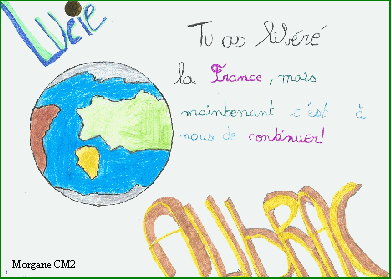 Lucie
Tu as libéré
la France, mais
maintenant c'est à
nous de continuer!
AUbRAC
Morgane CM2